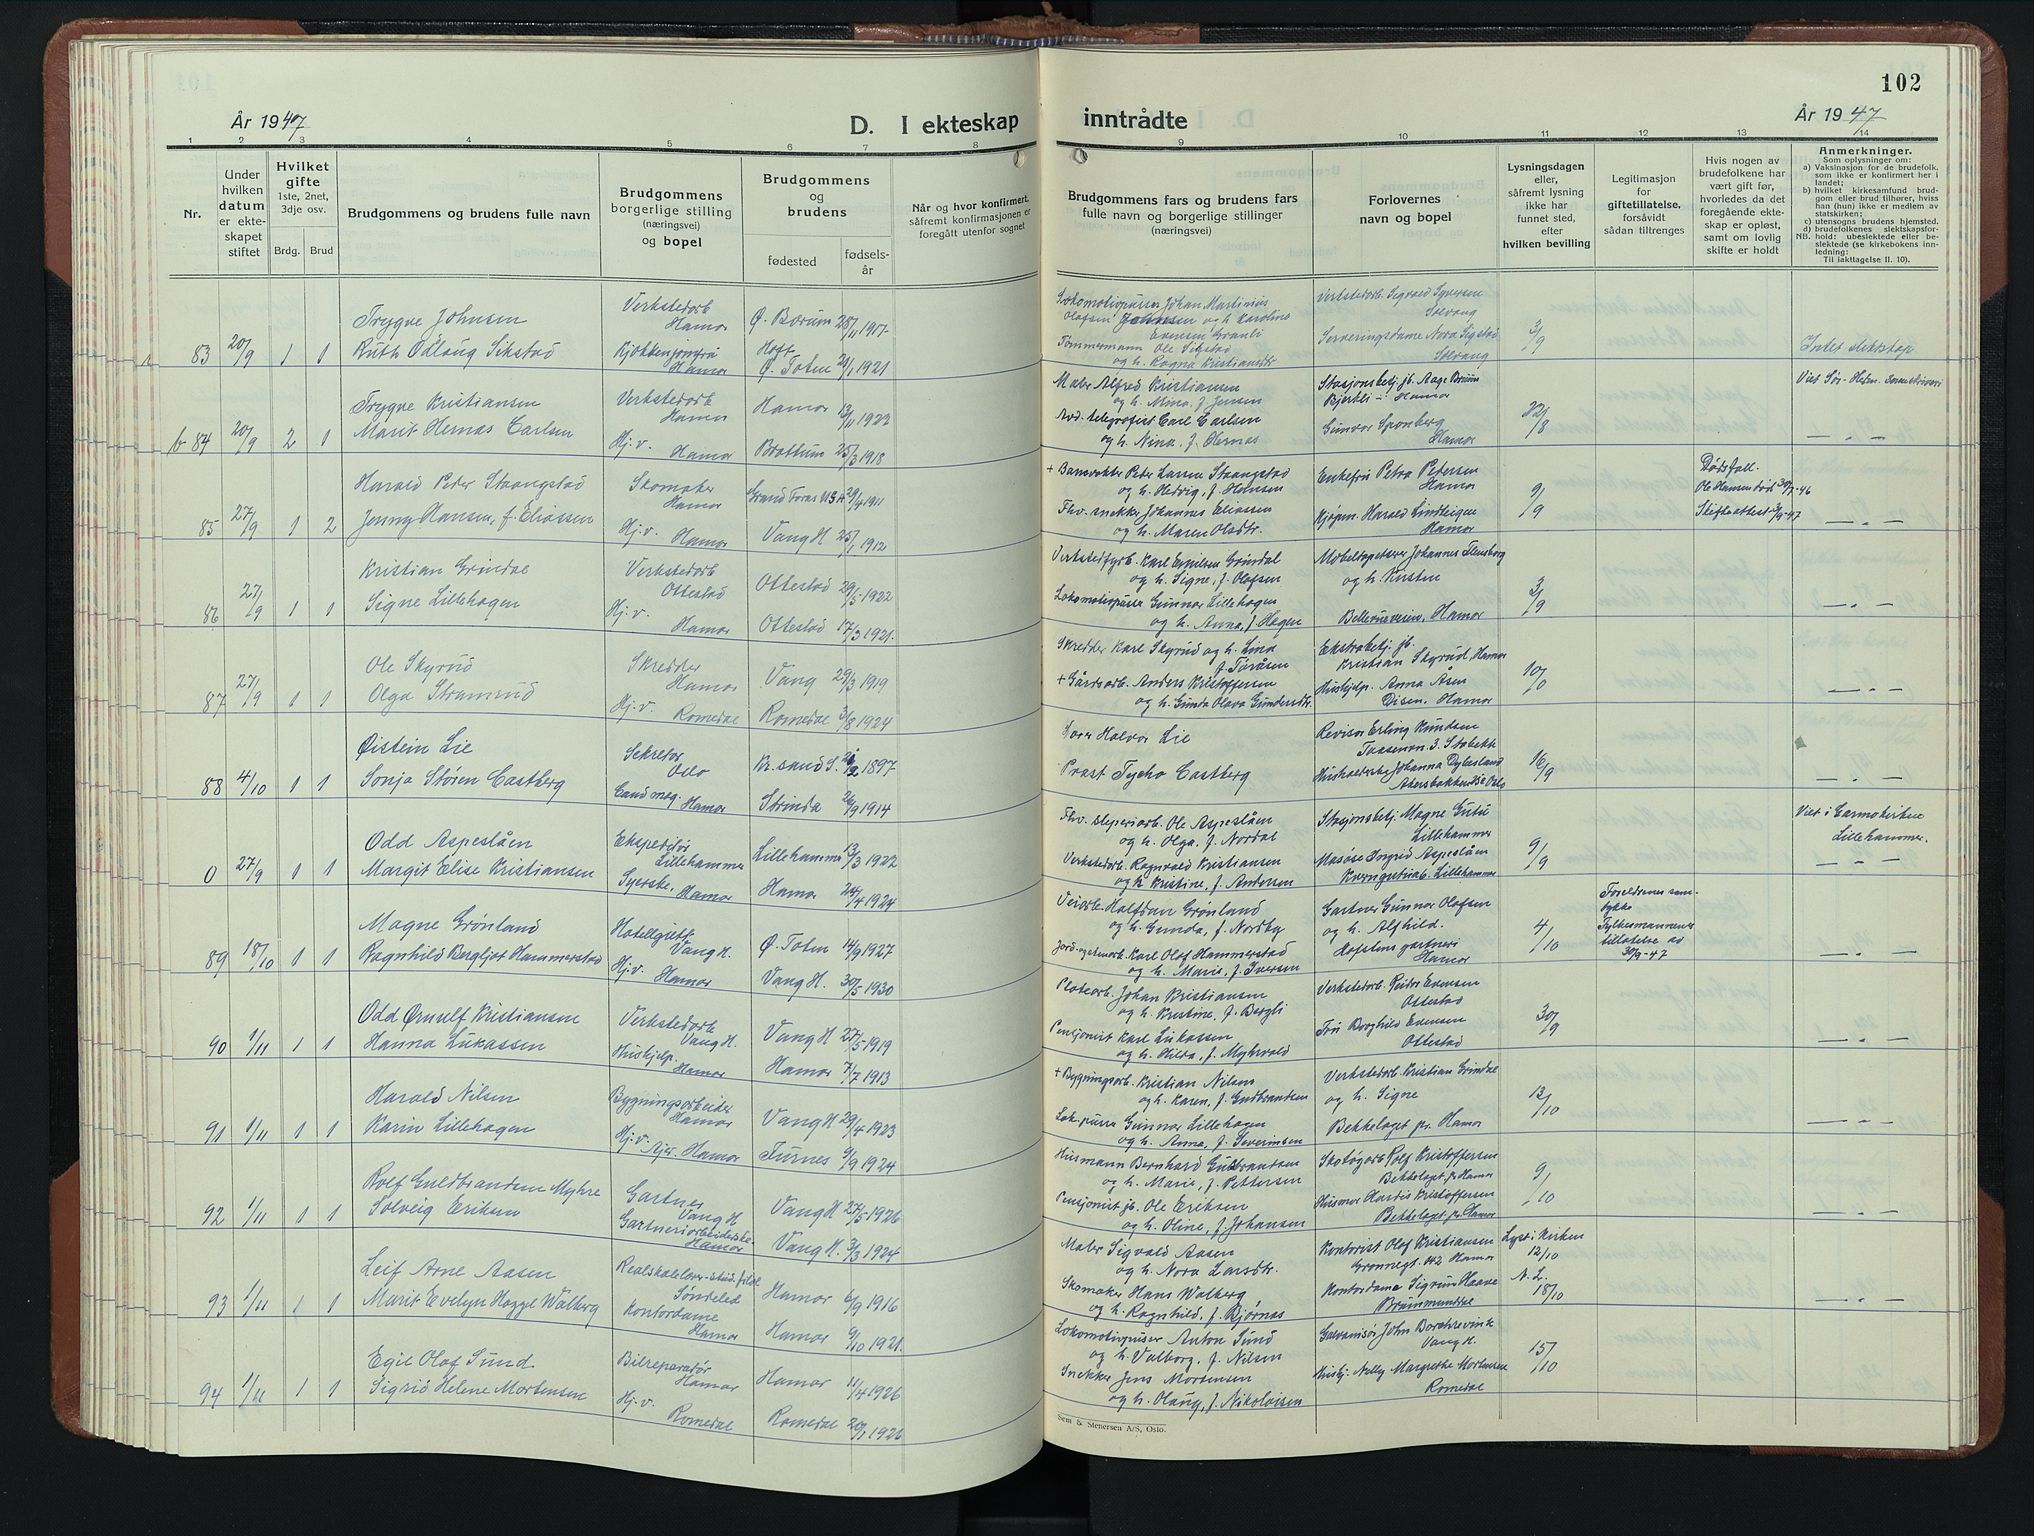 102
År 1947
D. I ekteskap
inntrådte
År 1947
1 2 3 4 5 6 7 8
9 10 11 12 13 14
Nr.
Under hvilken datum er ekteskapet stiftet
Hvilket gifte
1ste, 2net, 3dje osv.
Brdg. Brud
Brudgommens og brudens fulle navn
Brudgommens borgerlige stilling (næringsvei) og bopel
Brudgommens og brudens
fødested
fødselsår
Når og hvor konfirmert, såfremt konfirmasjonen er foregått utenfor sognet
Brudgommens fars og brudens fars fulle navn og borgerlige stillinger (næringsvei)
Forlovernes navn og bopel
Lysningsdagen eller, såfremt lysning ikke har funnet sted, efter hvilken bevilling
Legitimasjon for giftetillatelse, forsåvidt sådan tiltrenges
Hvis nogen av brudefolkene har vært gift før, hvorledes da det foregående ekteskap er opløst, samt om lovlig skifte er holdt
Anmerkninger.
Som oplysninger om:
a) Vaksinasjon for de brudefolk, som ikke er konfirmert her i landet;
b) hvilket kirkesamfund brudgom eller brud tilhører, hviss han (hun) ikke er medlem av statskirken;
c) utensogns brudens hjemsted.
d) brudefolkenes slektskapsforhold: ubeslektede eller beslektede (se kirkebokens innledning:
NB.
Til iakttagelse II. 10).
83 20/9 1 1
Trygve Johnsen
Ruth Odlaug Sikstad
Verkstedarb Hamar
Kjøkkenjomfru Hamar
Ø. Bærum 28/11 1917
Hoff Ø. Toten 21/1 1921
Lokomotivpusser Johan Martinius
Olafsen Johnsen og h. Karoline
Evensen Granli
Tømmermann Ole Sikstad
og h. Ragna Kristiansdtr
Verkstedarb. Sigvald Syversen
Solvang
Serveringsdame Nora Sigstad
Solvang
3/9
Intet slektskap
b 84 20/9 2 1
Trygve Kristiansen
Marit Hernæs Carlsen
Verkstedarb Hamar
Hj.v. Hamar
Hamar 13/11 1922
Brøttum 25/3 1918
Maler Alfred Kristiansen
og h. Mina, f. Jensen
Avd. telegrafist Carl Carlsen
og h. Nina, f. Hernæs
Stasjonsbetj. jb. Aage Bruun
Bjertli Hamar
Gunvor Sponberg
Hamar
22/8
— " —
85 27/9 1 2
Harald Peder Staangstad
Jenny Hansen, f. Eliassen
Skomaker Hamar
Hj.v. Hamar
Grand Foras USA 29/4 1911
Vang H 25/1 1912
+ Banevokter Peder Larsen Staangstad
og h. Hedvig, f. Hansen
Fhv. snekker Johannes Eliassen
og h. Maren Olsdtr.
Enkefru Petra Pedersen
Hamar
Kjøpm. Harald Lindteigen
Hamar
9/9
Dødsfall.
Ole Hansen død 30/7-46
Skifteattest 3/9-47
— " —
86 27/9 1 1
Kristian Grindal
Signe Lillehagen
Verkstedarb Ottestad
Hj.v. Hamar
Ottestad 29/5 1922
Ottestad 17/3 1921.
Verkstedfyrb. Karl Emilsen Grindal
og h. Signe, f. Olafsen
Lokomotivpusser Gunnar Lillehagen
og h. Anna, f. Hagen
Møbeltapetserer Johannes Flensborg
og h. Kirsten
Bellevueveien, Hamar
3/9
— " —
87 27/9 1 1
Ole Skyrud
Olga Stramrud
Skredder Hamar
Hj.v. Romedal
Vang 29/3 1919
Romedal 3/8 1924
Skredder Karl Skyrud og h. Lina
f. Toråsen
+ Gårdsarb. Anders Kristoffersen
og h. Gunda Olava Gundersdtr.
Ekstrabetj. jb.
Kristian Skyrud, Hamar
Hushjelp. Anna Åsen
Disen, Hamar
— " —
88 4/10 1 1
Øistein Lie
Sonja Støren Castberg
Sekretær Oslo
Cand mag. Hamar
Kr.sand S. 1897
Strinda 26/9 1914
Halvor Lie
Prost Tycho Castberg
Revisor Erling Knudsen
Taasenvn. 3. Stabekk
Husholderske Johanna Dybesland
Akersbakken 35 Oslo
16/9
— " —
0 27/9 1 1
Odd Aspeslåen
Margit Elise Kristiansen
Ekspeditør Lillehammer
Syerske, Hamar
Lillehammer 13/3 1922
Hamar 24/4 1924
Fhv. sliperiarb. Ole Aspeslåen
og h. Olga, f. Nordal
Verkstedarb. Ragnvald Kristiansen
og h Kristine, f. Andersen
Stasjonsbetj. Magne Gutu
Lillehammer
Masøse Ingrid Aspeslåen
Lillehammer
9/9
Viet i Garmokirken
Lillehammer.
— " —
89 18/10 1 1
Magne Grønland
Ragnhild Bergljot Hammerstad
Hotellgutt Vang H.
Hj.v. Hamar
Ø. Toten 14/9 1927
Vang H. 30/5 1930
Veiarb. Halfdan Grønland
og h. Gunda, f. Nordby
Jord- og skinarb. Karl Olof Hammerstad
og h. Marie, f. Iversen
Gartner Gunnar Olafsen
og h. Alfhild.
gartneri
Hamar
4/10
Foreldrenes samtykke
Fylkesmannens tillatelse av
30/9-47
— " —
90 1/11 1 1
Odd Ørnulf Kristiansen
Hanna Lukassen
Verkstedarb Vang H.
Hushjelp. Hamar
Vang H 27/5 1919
Hamar 7/7 1913
Platearb. Johan Kristiansen
og h. Kristine, f. Bergli
Pensjonist Karl Lukassen
og h. Hilda, f. Myhrvold
Verkstedarb. Peder Evensen
Ottestad
Fru Borghild Evensen
Ottestad
30/9
— " —
91 1/11 1 1
Harald Nilsen
Karin Lillehagen
Bygningsarbeider Hamar
Hj.v. Hamar
Vang H 29/4 1923
Furnes 9/9 1924
+ Bygningsarb. Kristian Nilsen
og h. Karen, f. Gudbrandsen
Lok.pusser Gunnar Lillehagen
og h. Anna, f. Severinsen
Verkstedarb Kristian Grindal
og h. Signe
Bekkelaget pr. Hamar
13/10
— " —
92 1/11 1 1
Rolf Guldbrandsen Myhre
Solveig Eriksen
Gartner Vang H
Gartneriarbeiderske Hamar
Vang H 27/5 1926
Vang H. 3/3 1924
Husmann Bernhard Guldbrandsen
og h. Marie, f. Pettersen
Pensjonist jb. Ole Eriksen
og h. Oline, f. Johansen
Skotøyarb Rolf Kristoffersen
Bekkelaget pr. Hamar
Husmor Hardis Kristoffersen
Bekkelaget pr. Hamar
9/10
— " —
93 1/11 1 1
Leif Arne Aasen
Marit Evelyn Hoggel Walberg
Realskolelærer-stud. filol Søndeled
Kontordame Hamar
Hamar 6/9 1916
Hamar 9/10 1921.
Maler Sigvald Aasen
og h. Nora Larsdtr.
Skomaker Hans Walberg
og h. Ragnhild, f. Bjørnæs
Kontorist Olaf Kristiansen
Grønnegt. 42 Hamar
Kontordame Sigrun Haave
Brummunddal
Lyst i kirken
12/10
N. L.
18/10
— " —
94 1/11 1 1
Egil Olaf Sund
Sigrid Helene Mortensen
Bilreparatør Hamar
Hj.v. Romedal
Hamar 11/4 1926
Romedal 20/1 1926
Lokomotivpusser Anton Sund
og h. Valborg, f. Nilsen
Snekker Jens Mortensen
og h. Olaug, f. Nikolaisen
Galvanisør John Borchrevink
Vang H.
Husbj. Nelly Margrethe Mortensen
Romedal
15/10
Sem & Stenersen A/S, Oslo.